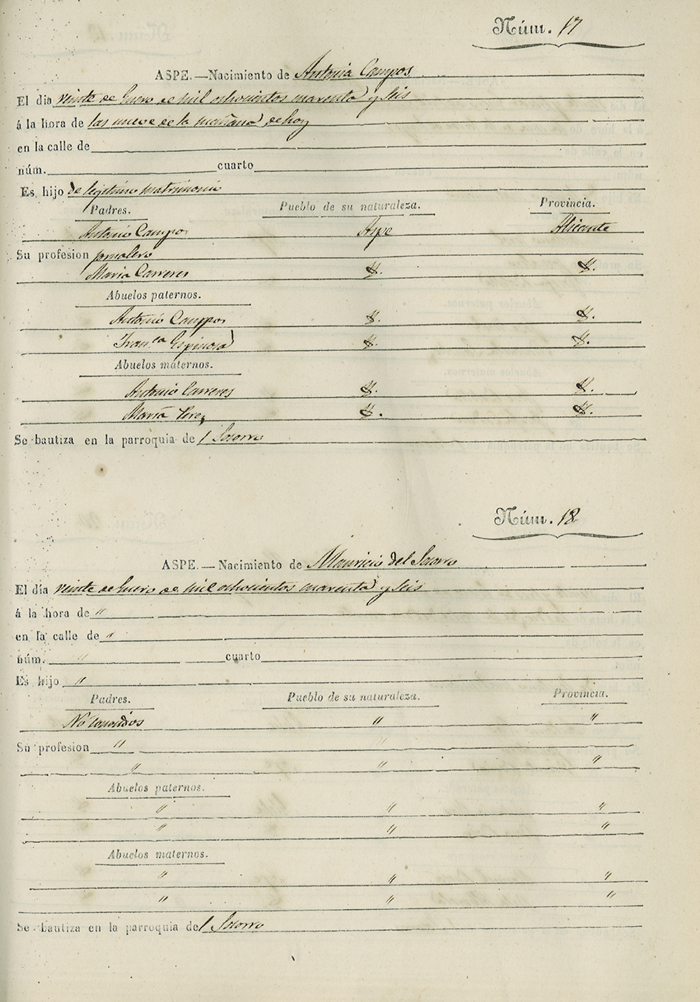 Núm. 17
ASPE.—Nacimiento de Antonia Campos
El dia veinte de Enero de mil ochocientos cuarenta y seis
á la hora de las nueve de la mañana de hoy
en la calle de
núm. cuarto
Es hijo de legitimo matrimonio
Padres. Pueblo de su naturaleza. Provincia.
Antonio Campos Aspe Alicante
Su profesion jornalero
Maria Carreres Y. Y.
Abuelos paternos.
Antonio Campos Y. Y.
Franca Espinosa Y. Y.
Abuelos maternos.
Antonio Carreres Y. Y.
Maria Perez Y. Y.
Se bautiza en la parroquia de l Socorro
Núm. 18
ASPE.—Nacimiento de Mauricio del Socorro
El dia veinte de Enero de mil ochocientos cuarenta y seis
á la hora de "
en la calle de "
núm. " cuarto
Es hijo "
Padres. Pueblo de su naturaleza. Provincia.
No conocidos " "
Su profesion "
" " "
Abuelos paternos.
" " "
" " "
Abuelos maternos.
" " "
" " "
Se bautiza en la parroquia de l Socorro